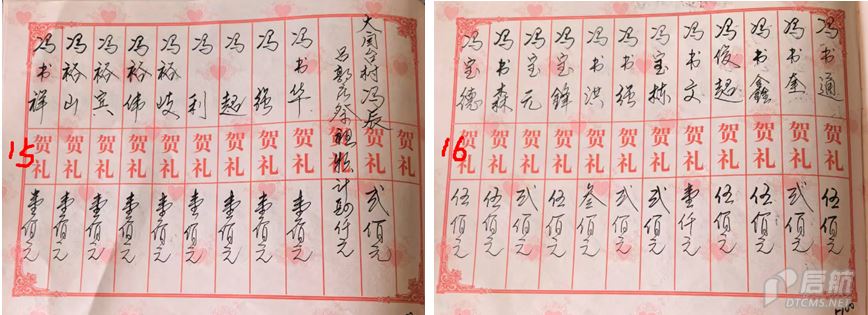 15
贺礼
大闫台村冯辰 贰佰元
祭祖 计 仟元
冯书华 贺礼 壹佰元
冯强 贺礼 壹佰元
冯起 贺礼 壹佰元
冯利 贺礼 壹佰元
冯裕岐 贺礼 壹佰元
冯裕伟 贺礼 壹佰元
冯裕宾 贺礼 壹佰元
冯裕山 贺礼 壹佰元
冯书祥 贺礼 壹佰元
16
冯书通 贺礼 伍佰元
冯书奎 贺礼 贰佰元
冯书鑫 贺礼 伍佰元
冯俊超 贺礼 伍佰元
冯书文 贺礼 壹仟元
冯宝栋 贺礼 贰佰元
冯书强 贺礼 贰佰元
冯书洪 贺礼 叁佰元
冯宝锋 贺礼 伍佰元
冯宝元 贺礼 贰佰元
冯书森 贺礼 伍佰元
冯宝德 贺礼 伍佰元
启航
DTCMS.NET